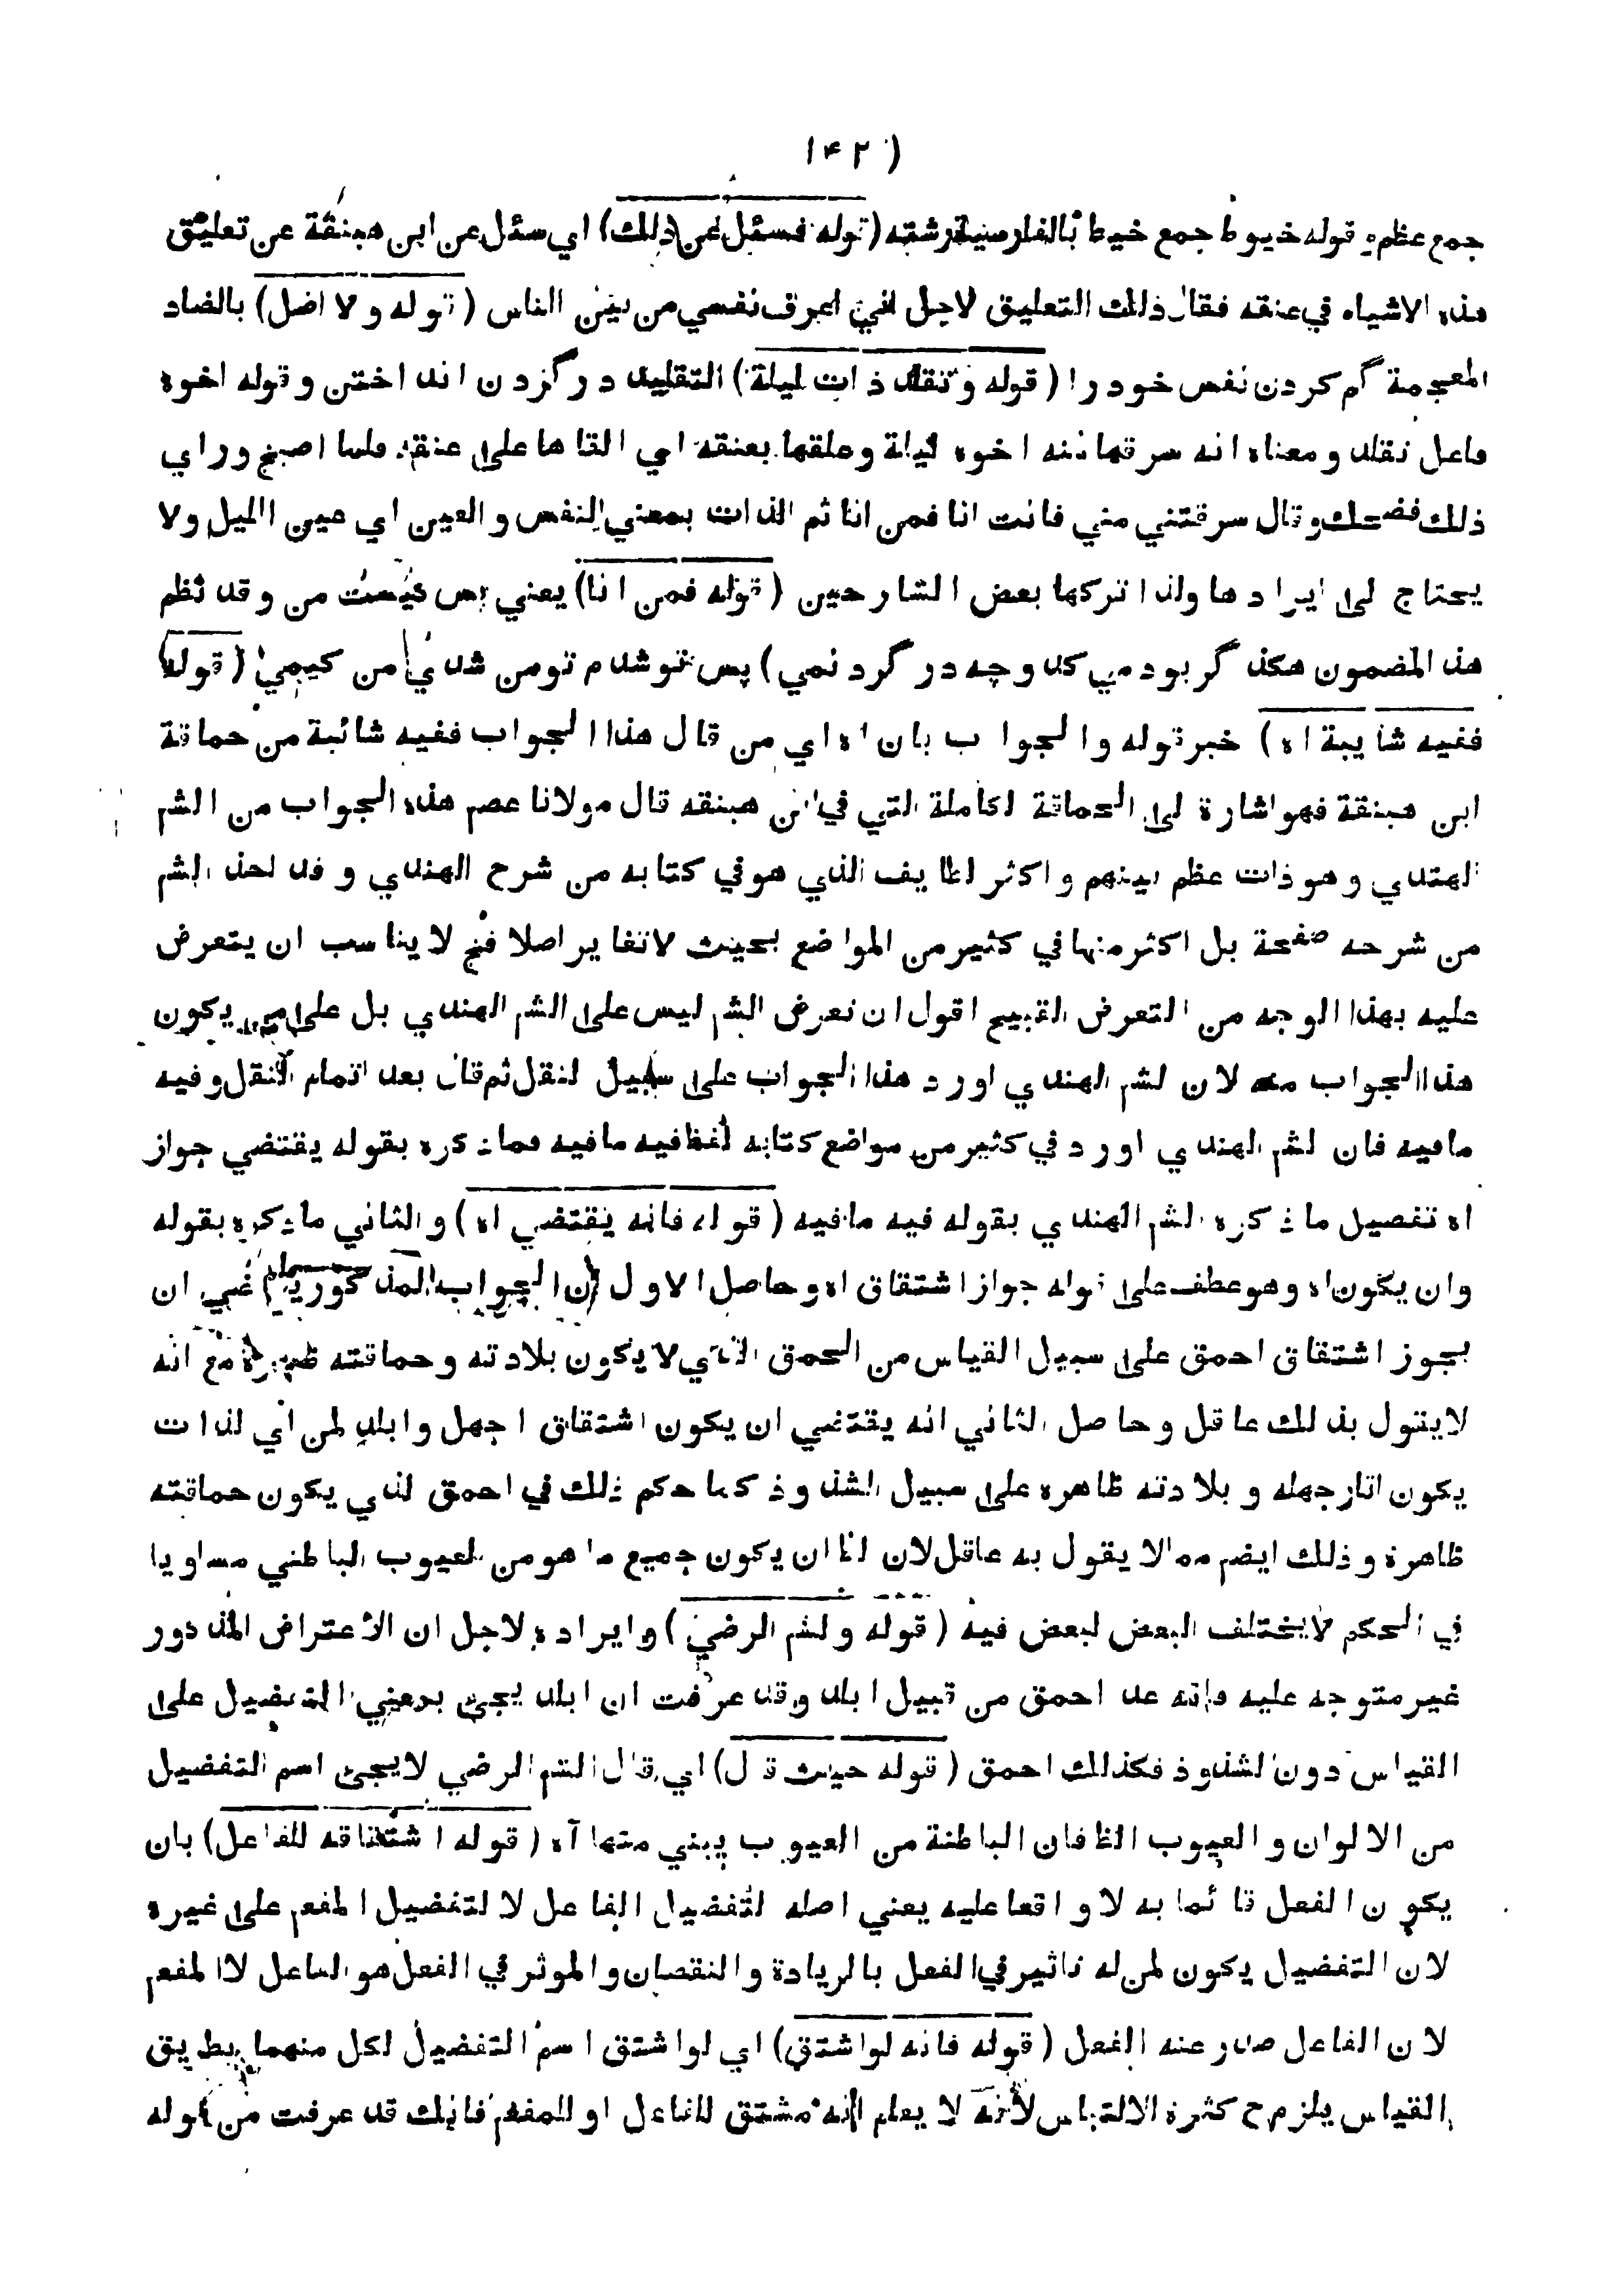 ۱۴۲ )
جمع عظم و قوله خيوط جمع خيط بالفارسية رشته (قوله فسئل عن ذلك) اي سئل عن ابن هبنقة عن تعليق
هذه الاشياء في عنقه فقال ذلك التعليق لاجل اني اعرف نفسي من بين الناس (قوله ولا اضل) بالضاد
المعجمة گم كردن نفس خود را (قوله و تقلد ذات ليلة) التقليد در گردن انداختن و قوله اخوه
فاعل تقلد و معناه انه سرقها منه اخوه ليلة و علقها بعنقه اي القاها على عنقه فلما اصبح وراي
ذلك فضحك و قال سرقتني مني فانت انا فمن انا ثم الذات بمعني النفس و العين اي عين الليل ولا
يحتاج الى ايرادها ولذا تركها بعض الشارحين (قوله فمن انا) يعني پس كيست من و قد نظم
هذا المضمون هكذا گر بود مي كد وچه در گرد نمي) پس تو شدم تو من شدي من كيمي (قوله
ففيه شايبة اه) خبر قوله والجواب بان اه اي من قال هذا الجواب ففيه شائبة من حماقة
ابن هبنقة فهو اشارة الى الحماقة الكاملة التي في ابن هبنقه قال مولانا عصم هذه الجواب من الشر
الهندي و هو ذات عظم بينهم و اكثر لطايف الذي هو في كتابه من شرح الهندي و قد اخذ الشر
من شرحه صفحة بل اكثر منها في كثير من المواضع بحيث لا تغاير اصلا فح لا يناسب ان يتعرض
عليه بهذا الوجه من التعرض القبيح اقول ان تعرض الشر ليس على الشر الهندي بل على من يكون
هذا الجواب منه لان الشر الهندي اورد هذا الجواب على سبيل النقل ثم قال بعد اتمام النقل و فيه
ما فيه فان الشر الهندي اورد في كثير من مواضع كتابه لفظ فيه ما فيه فما ذكره بقوله يقتضي جواز
اه تفصيل ما ذكره الشر الهندي بقوله فيه ما فيه (قوله فانه يقتضي اه) و الثاني ما ذكره بقوله
وان يكون اه و هو عطف على قوله جواز اشتقاق اه و حاصل الاول ان الجواب المذكور يقتضي ان
يجوز اشتقاق احمق على سبيل القياس من الحمق الذي لا يكون بلادته و حماقته ظهرة مع انه
لا يقول بذلك عاقل و حاصل الثاني انه يقتضي ان يكون اشتقاق اجهل و ابلد لمن اي لذات
يكون اثار جهله و بلادته ظاهره على سبيل الشذوذ كما حكم ذلك في احمق لذي يكون حماقته
ظاهرة و ذلك ايضم مما لا يقول به عاقل لان لنا ان يكون جميع ما هو من العيوب الباطني مساويا
في الحكم لا يختلف البعض لبعض فيه (قوله و لشر الرضي) و ايراده لاجل ان الاعتراض المذكور
غير متوجه عليه فانه عد احمق من قبيل ابلد و قد عرفت ان ابلد يجئ بمعني التفضيل على
القياس دون الشذوذ فكذلك احمق (قوله حيث قال) اي قال الشر الرضي لا يجئ اسم التفضيل
من الالوان و العيوب الظ فان الباطنة من العيوب يبني منها آه (قوله اشتقاقه للفاعل) بان
يكون الفعل قائما به لا واقعا عليه يعني اصله لتفضيل الفاعل لا لتفضيل المفعم على غيره
لان التفضيل يكون لمن له تاثير في الفعل بالزيادة و النقصان و الموثر في الفعل هو الفاعل لا المفعم
لان الفاعل صدر عنه الفعل (قوله فانه لو اشتق) اي لو اشتق اسم التفضيل لكل منهما بطريق
القياس يلزم ح كثرة الالتباس لانه لا يعلم انه مشتق للفاعل او للمفعم فانك قد عرفت من قوله